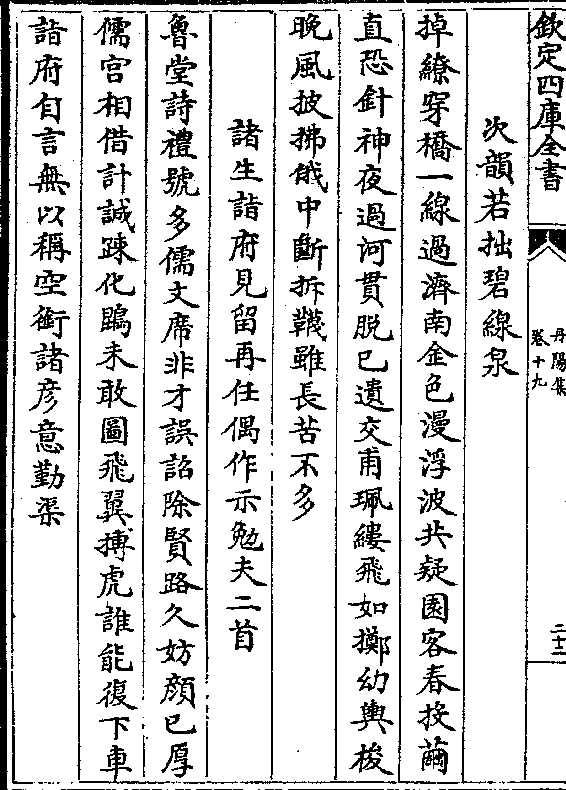 欽定四庫全書
丹陽集
卷十九
二十二
次韻若拙碧線泉
掉繚穿橋一線過濟南金色漫浮波共疑園客春投繭
直恐針神夜過河貫脱已遺交甫珮縷飛如擲幼輿梭
晚風披拂俄中斷拆韈雖長苦不多
諸生詣府見留再任偶作示勉夫二首
魯堂詩禮號多儒文席非才誤詔除賢路久妨顔已厚
儒宫相借計誠疎化鵾未敢圖飛翼搏虎誰能復下車
詣府自言無以稱空銜諸彦意勤渠